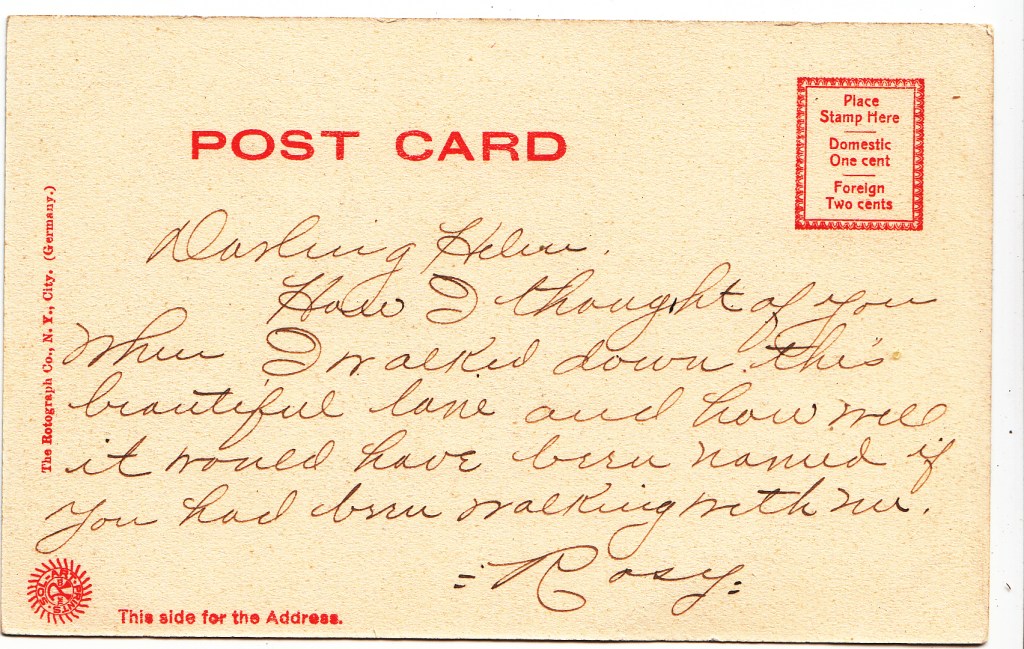 POST CARD
Place
Stamp Here
Domestic
One cent
Foreign
Two cents
The Rotograph Co., N. Y., City. (Germany.)
Darling Helen.
How I thought of you
when I walked down this
beautiful lane and how well
it would have been named if
you had been walking with me.
= Rosy =
SOL-ART-PRINTS
This side for the Address.